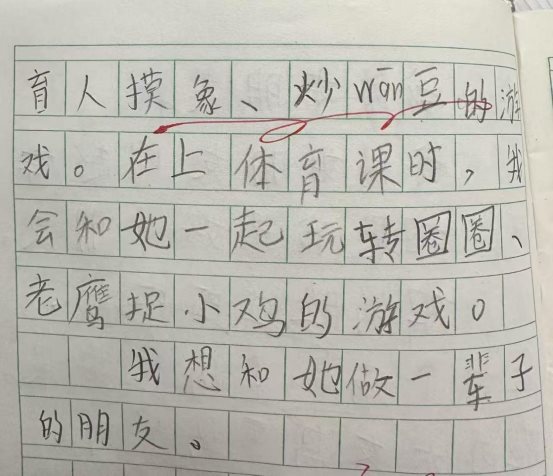 育人摸象、炒wān豆的游
戏。在上体育课时，我
会和她一起玩转圈圈、
老鹰捉小鸡的游戏。
我想和她做一辈子
的朋友。